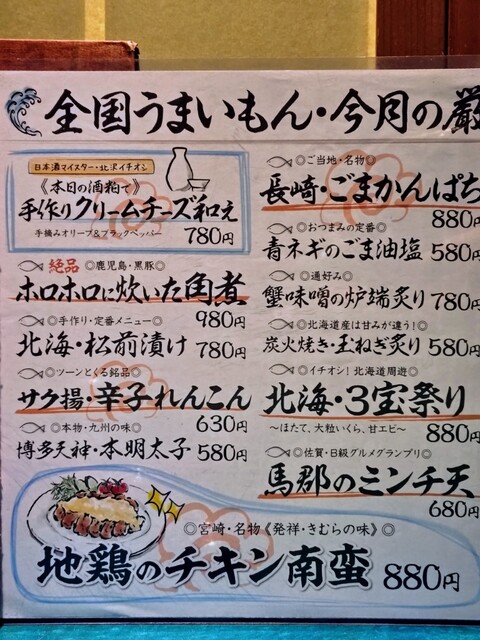 全国うまいもん・今月の厳
日本酒マイスター・北沢イチオシ
《本日の酒粕で》
手作りクリームチーズ和え
手摘みオリーブ&ブラックペッパー 780円
絶品 ◎鹿児島・黒豚◎
ホロホロに炊いた角煮
980円
◎手作り・定番メニュー◎
北海・松前漬け 780円
◎ツーンとくる銘品◎
サク揚・辛子れんこん
630円
◎本物・九州の味◎
博多天神・本明太子 580円
◎ご当地・名物◎
長崎・ごまかんぱち
880円
◎おつまみの定番◎
青ネギのごま油塩 580円
◎通好み◎
蟹味噌の炉端炙り 780円
◎北海道産は甘みが違う!◎
炭火焼き・玉ねぎ炙り 580円
◎イチオシ!北海道周遊◎
北海・3宝祭り
〜ほたて、大粒いくら、甘エビ〜
880円
◎佐賀・B級グルメグランプリ◎
馬郡のミンチ天
680円
◎宮崎・名物《発祥・きむらの味》◎
地鶏のチキン南蛮 880円